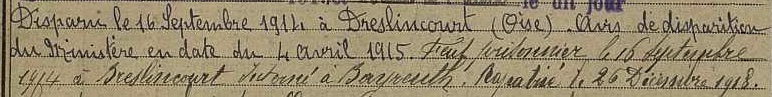 le un jour
Disparu le 16 Septembre 1914 à Dreslincourt (Oise). Avis de disparition
du Ministère en date du 4 avril 1915. Fait prisonnier le 16 septembre
1914 à Breslincourt Interné à Bayreuth. Rapatrié le 26 Décembre 1918.